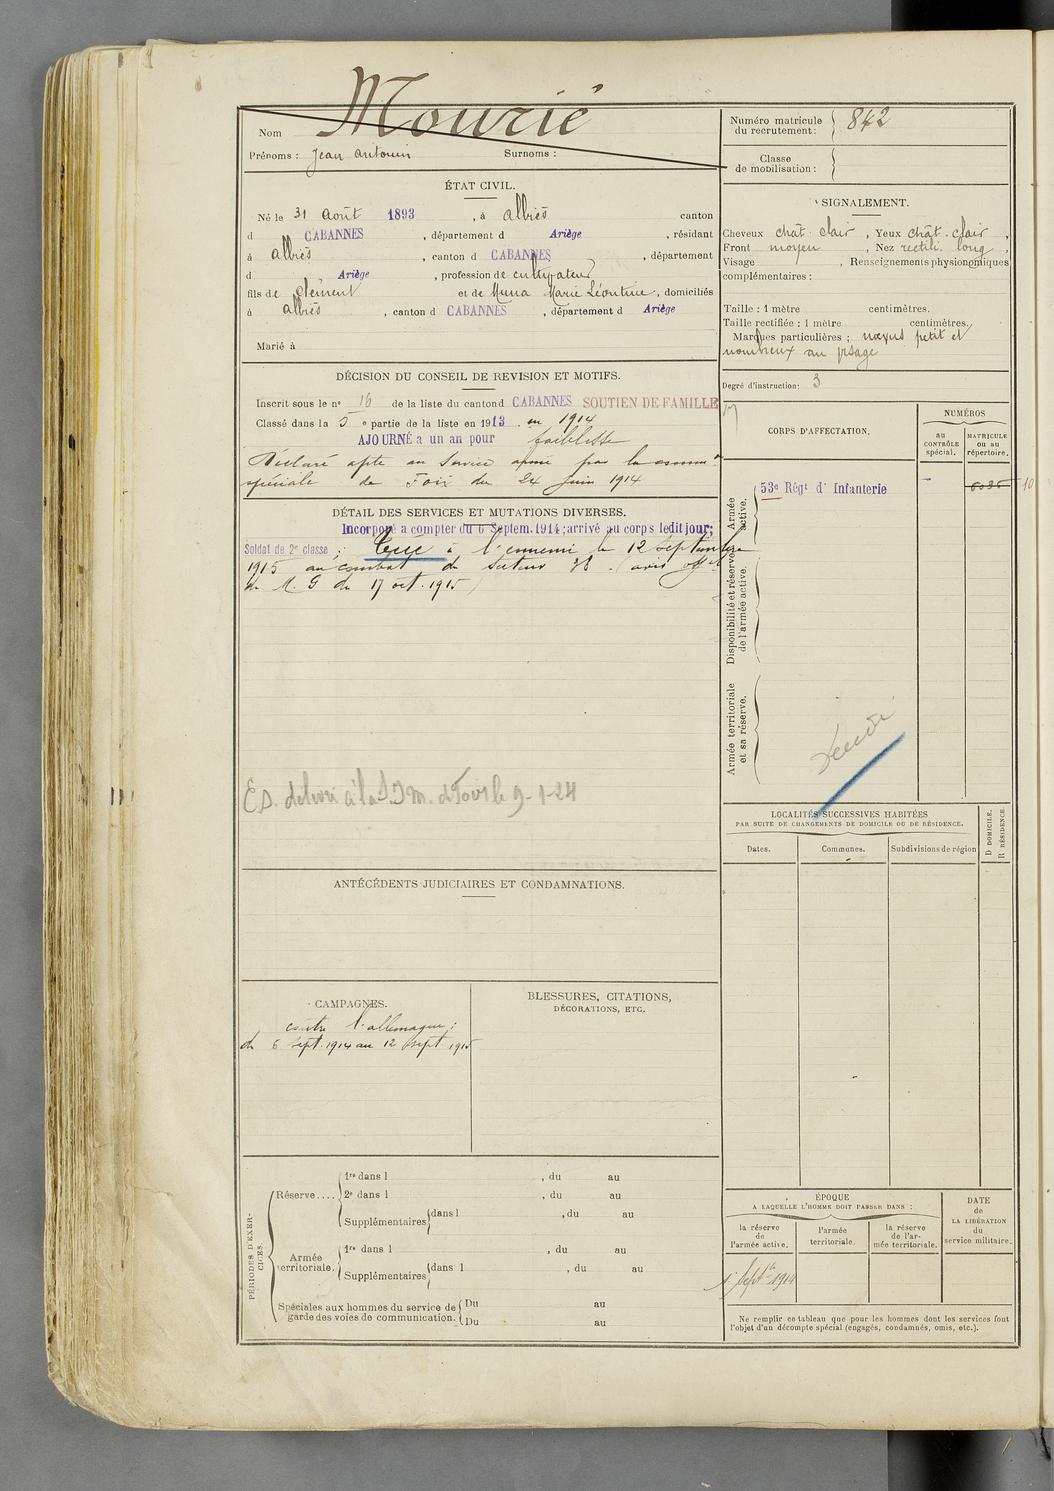 Nom Mourié
Prénoms : Jean Antonin Surnoms :
Numéro matricule du recrutement : 842
Classe de mobilisation :
ÉTAT CIVIL.
Né le 31 Août 1893, à Albiès canton
d CABANNES, département d Ariège, résidant
à Albiès, canton d CABANNES, département
d Ariège, profession de cultivateur
fils de Clément et de Muna Marie Léontine, domiciliés
à Albiès, canton d CABANNES, département d Ariège
Marié à
SIGNALEMENT.
Cheveux chât. clair, Yeux chât. clair,
Front moyen, Nez rectili. long,
Visage , Renseignements physionomiques
complémentaires :
Taille : 1 mètre centimètres.
Taille rectifiée : 1 mètre centimètres.
Marques particulières : nævus petit et
nombreux au visage
Degré d'instruction : 3
DÉCISION DU CONSEIL DE REVISION ET MOTIFS.
Inscrit sous le n° 16 de la liste du canton d CABANNES SOUTIEN DE FAMILLE
Classé dans la 5 e partie de la liste en 1913. en 1914
AJOURNÉ a un an pour faiblesse
Déclaré apte au service armé par la comm.on
spéciale de Foix du 24 Juin 1914
DÉTAIL DES SERVICES ET MUTATIONS DIVERSES.
Incorporé à compter du 6 Septem. 1914; arrivé au corps ledit jour;
Soldat de 2e classe; Tué à l'ennemi le 12 Septembre
1915 au combat du Secteur 38. (avis offel
du M. G du 17 oct. 1915)
E.S. délivré à la S.I.M. de Foix le 9-1-24
CORPS D'AFFECTATION.
NUMÉROS
au CONTRÔLE spécial.
MATRICULE ou au répertoire.
Armée active.
53e Régt d' Infanterie
Disponibilité et réserve de l'armée active.
Armée territoriale et sa réserve.
LOCALITÉS SUCCESSIVES HABITÉES
PAR SUITE DE CHANGEMENTS DE DOMICILE OU DE RÉSIDENCE.
Dates. Communes. Subdivisions de région D DOMICILE. R RÉSIDENCE.
ANTÉCÉDENTS JUDICIAIRES ET CONDAMNATIONS.
CAMPAGNES.
contre l'allemagne;
du 6 Sept. 1914 au 12 Sept 1915
BLESSURES, CITATIONS,
DÉCORATIONS, ETC.
PÉRIODES D'EXERCICES.
Réserve....
1re dans l , du au
2e dans l , du au
Supplémentaires dans l , du au
Armée territoriale.
1re dans l , du au
Supplémentaires dans l , du au
Spéciales aux hommes du service de garde des voies de communication.
Du au
Du au
ÉPOQUE
A LAQUELLE L'HOMME DOIT PASSER DANS :
la réserve de l'armée active.
l'armée territoriale.
la réserve de l'armée territoriale.
DATE de LA LIBÉRATION du service militaire.
Ne remplir ce tableau que pour les hommes dont les services font
l'objet d'un décompte spécial (engagés, condamnés, omis, etc.).